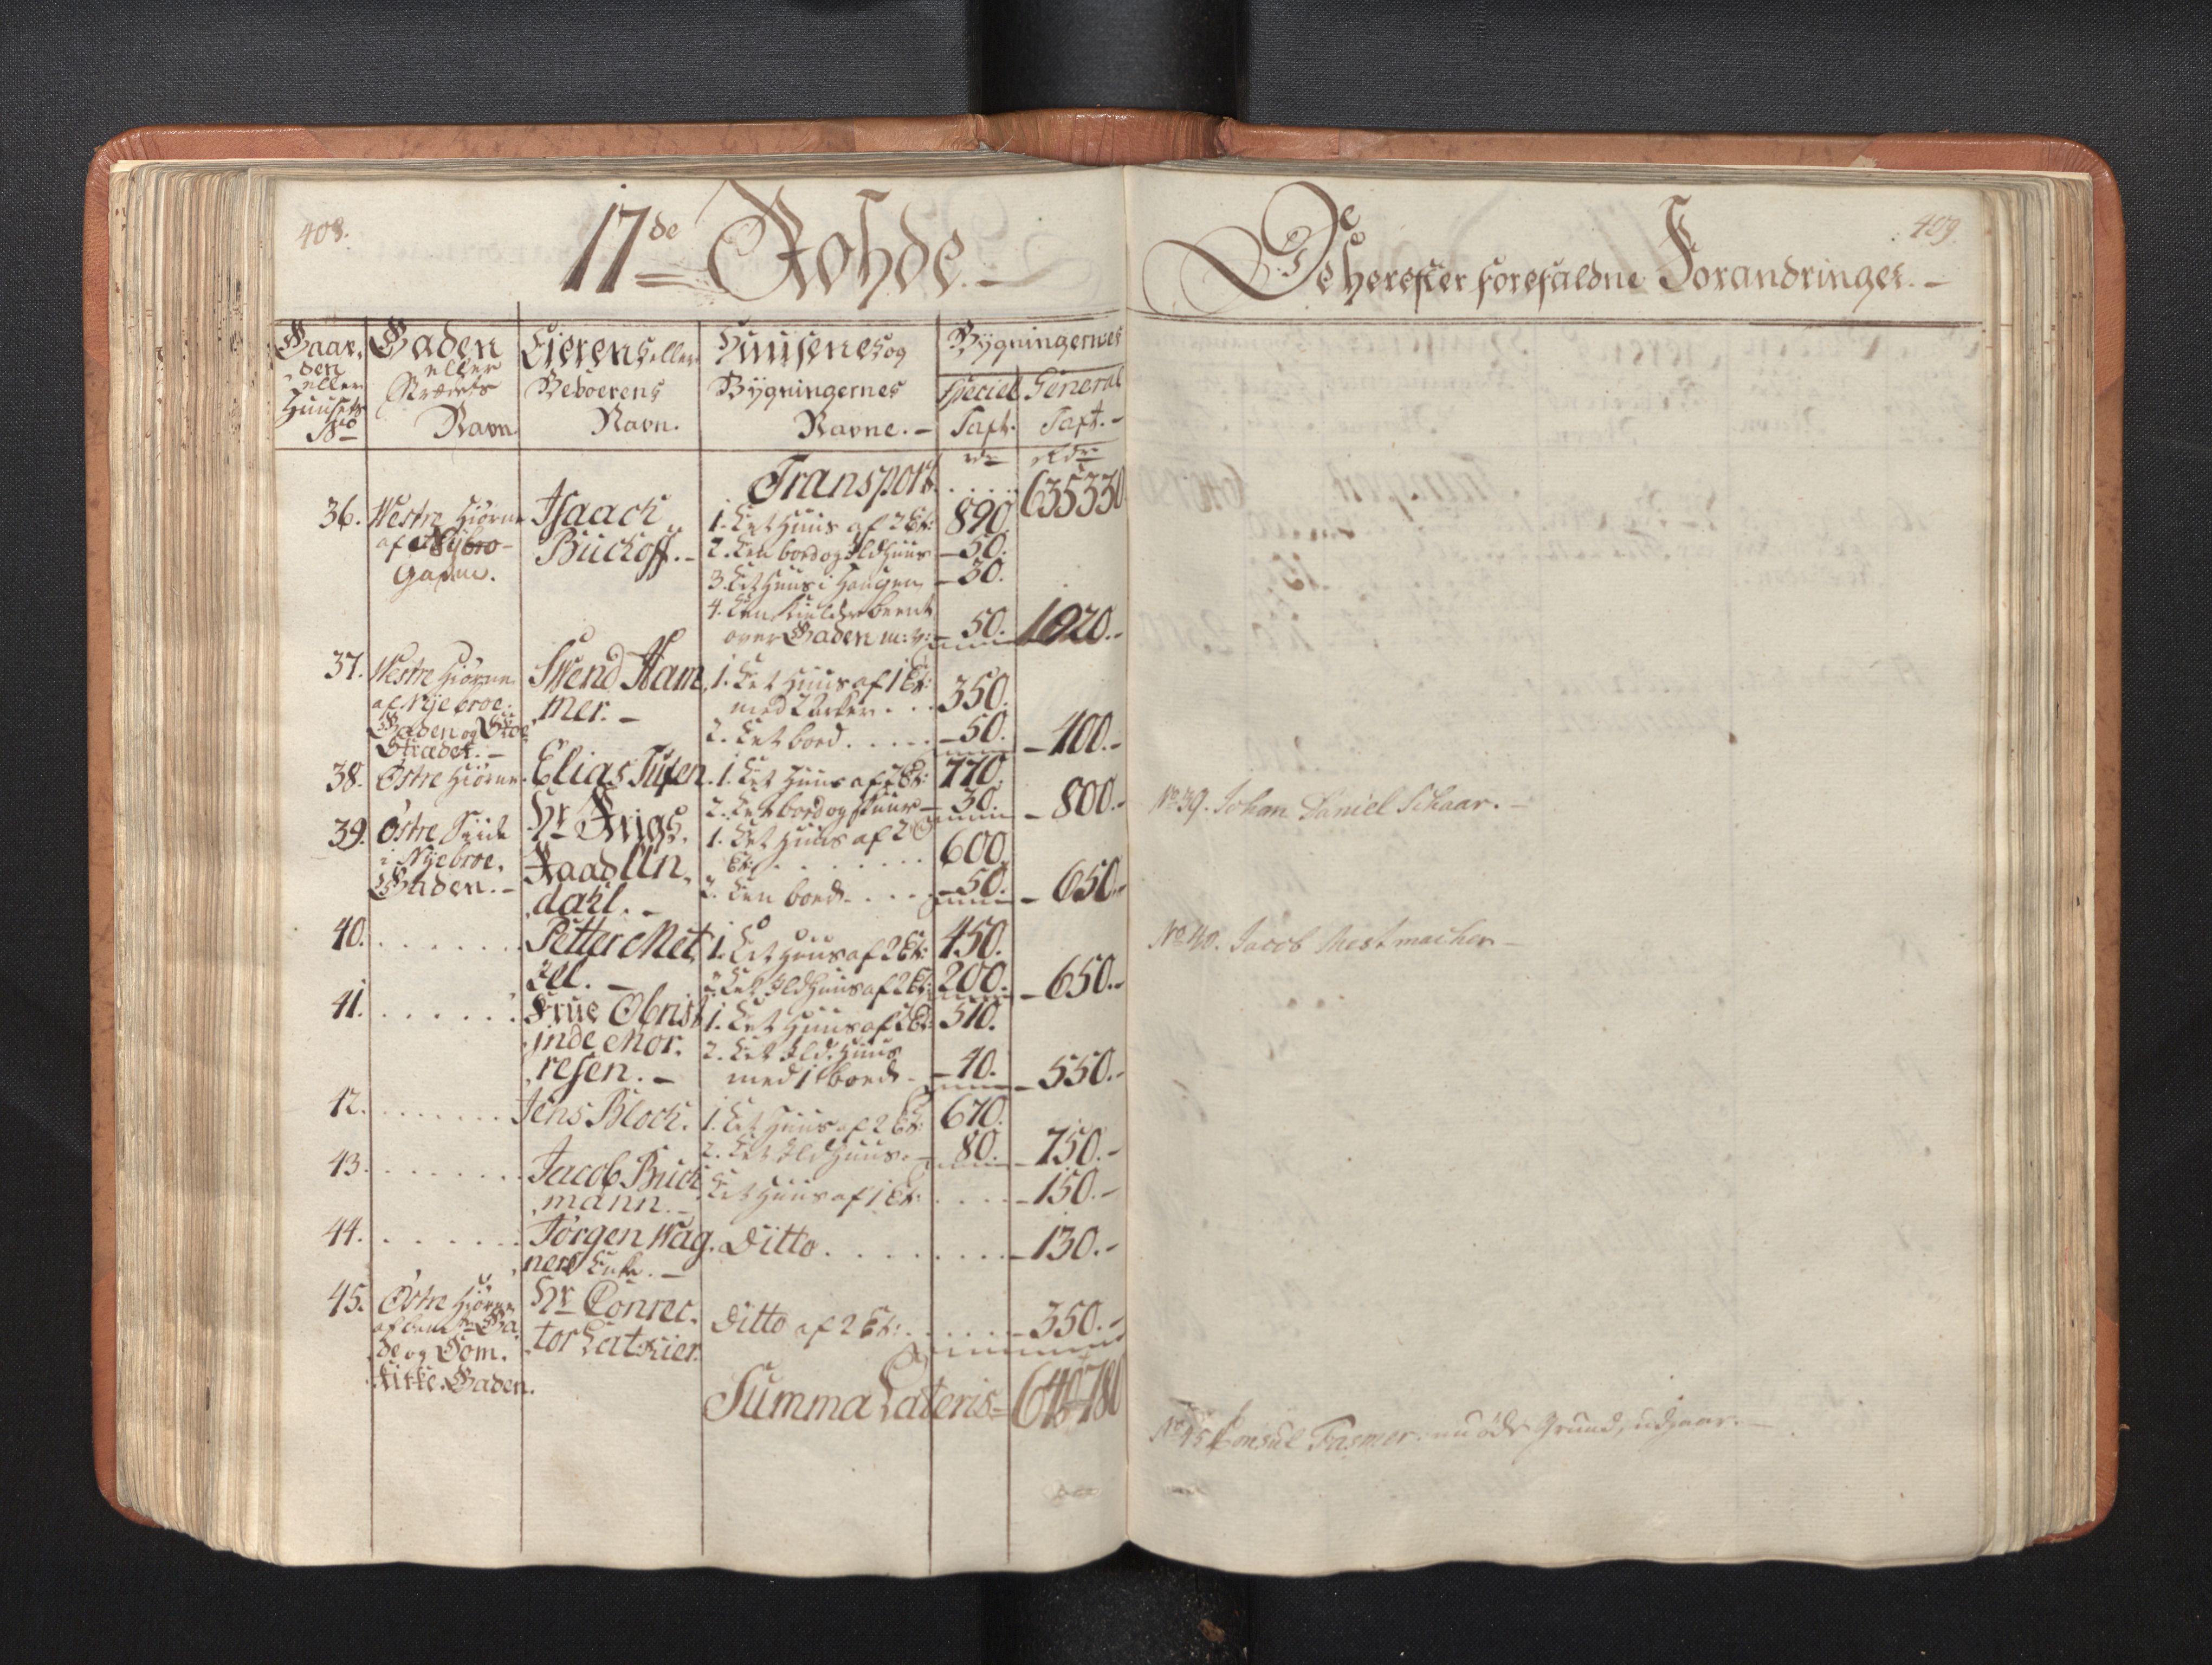 408.
17de Rohde. -
Gaar,
den
eller
Huusets
No
Gaden
eller
Strædets
Navn.
Eierens eller
Beboerens
Navn.
Huusenes og
Bygningernes
Navne. -
Bygningernes
Speciel
Taxt.
General
Taxt. -
rdr
Rdr
Transport . . . . 635330
36. Westre Hiørne
af Nÿbro-
Gaden.
Isaach
Büchoff. -
1. Eet Huus af 2 Et: 890.
2. Een bod og Ildhuus - 50.
3. Eet Huus i Haugen - 30.
4. Een Kielder beent
over Gaden m: v: - 50. 1020. -
37. Westre Hiørne
af Nÿebroe.
Gaden og
Strædet. -
Swend Ham,
,mer. -
1. Eet Huus af 1 Et:
med . . 350.
2. Eet bod . . . . . - 50. - 400. -
38. Østre Hiørne.
Elias Tufen.
1. Eet Huus af 2 Et: 770.
2. Een bod og skuur - 30. - 800. -
39. Østre Siide
i Nÿebroe,
Gaden. -
Hr Krigs,
Raad Un,
,dahl. -
1. Eet Huus af 2
Et: . . . . . . . 600.
2. Een bod - . . . - 50. - 650. -
40. . . . . . .
Petter Met,
zel. -
1. Eet Huus af 2 Et: 450.
2. Eet Ildhuus af 2 Et: 200. - 650. -
41. . . . . . .
Frue Obrist
,inde Mor,
,resen. -
1. Eet Huus af 2 Et: 510.
2. Eet Ild,Huus
med 1 bod - - 40. - 550. -
42. . . . . . .
Jens Bloch.
1. Eet Huus af 2 Et: 670.
2. Eet Ildhuus. - 80. - 750. -
43. . . . . . .
Jacob Buch
,mann. -
Eet Huus af 1 Et: . . . . - 150. -
44. . . . . . .
Jørgen Wag,
,ners Enke. -
Ditto . . . . . . . . . - 130. -
45. Østre Hiørne
af bem:te Ga,
,de og Dom,
,kirke,Gaden.
Hr Conrec,
,tor Latkier.
Ditto af 2 Et: . . . . . - 350. -
Summa Lateris = 640780
409.
De herefter forefaldne Forandringer. -
No 39. Johan Daniel Schaar. -
No 40. Jacob Mestmacher -
No 45 Consul Fasmer. nu øde Grund, udgaar. -